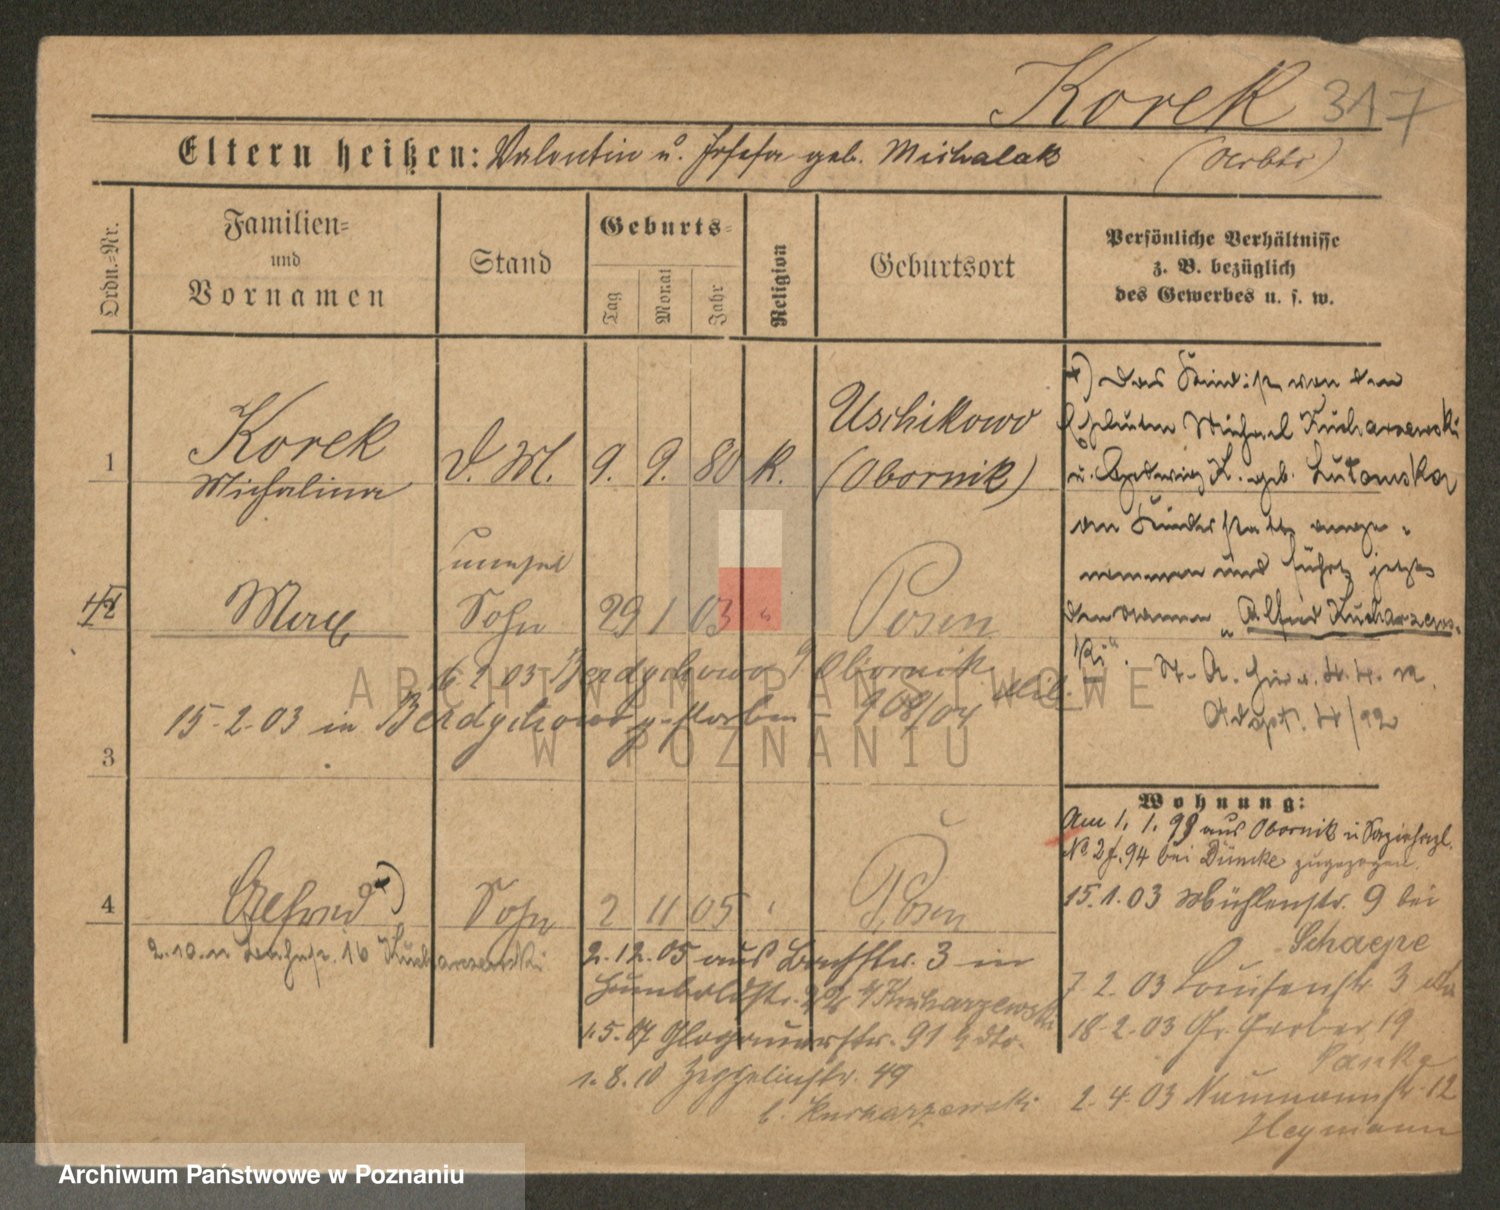 Korek 317
Eltern heißen: Valentin u. Josefa geb. Michalak
Ordn.-Nr.
Familien-
und
Vornamen
Stand
Geburts-
Tag
Monat
Jahr
Religion
Geburtsort
Persönliche Verhältnisse
z. B. bezüglich
des Gewerbes u. s. w.
1
Korek
Michalina
D. M.
9. 9. 80
K.
Uschikowo
(Obornik)
2
Max
unehel
Sohn
29 1 03
"
Posen
6 2 03 Berdychowo Obornik
15.2.03 in Berdychowo gestorben - 908/04
3
4
Alfred
Sohn
2 11 05
Posen
Kucharzewski
2.12.05 aus Bachstr. 3 in
Humboldtstr. Kucharzewski
1.5.07 Glogauerstr. 91 b dto.
1.8.10 Zeppelinstr. 49
b. Kucharzewski
Das Kind ist von den
Eheleuten Michael Kucharzewski
u. Hedwig K. geb. Lutomska
an Kindesstatt ange-
nommen und führt jetzt
den Namen "Alfred Kucharzews-
ki".
Wohnung:
Am 1. 1. 99 aus Obornik
bei Dümcke zugezogen.
15.1.03 Mühlenstr. 9 bei
Schaepe
7 2. 03 Louisenstr 3
18-2-03 Gr. Gerber 19
Panke
2. 4. 03 Naumannstr 12
Heymann
ARCHIWUM PAŃSTWOWE
W POZNANIU
Archiwum Państwowe w Poznaniu